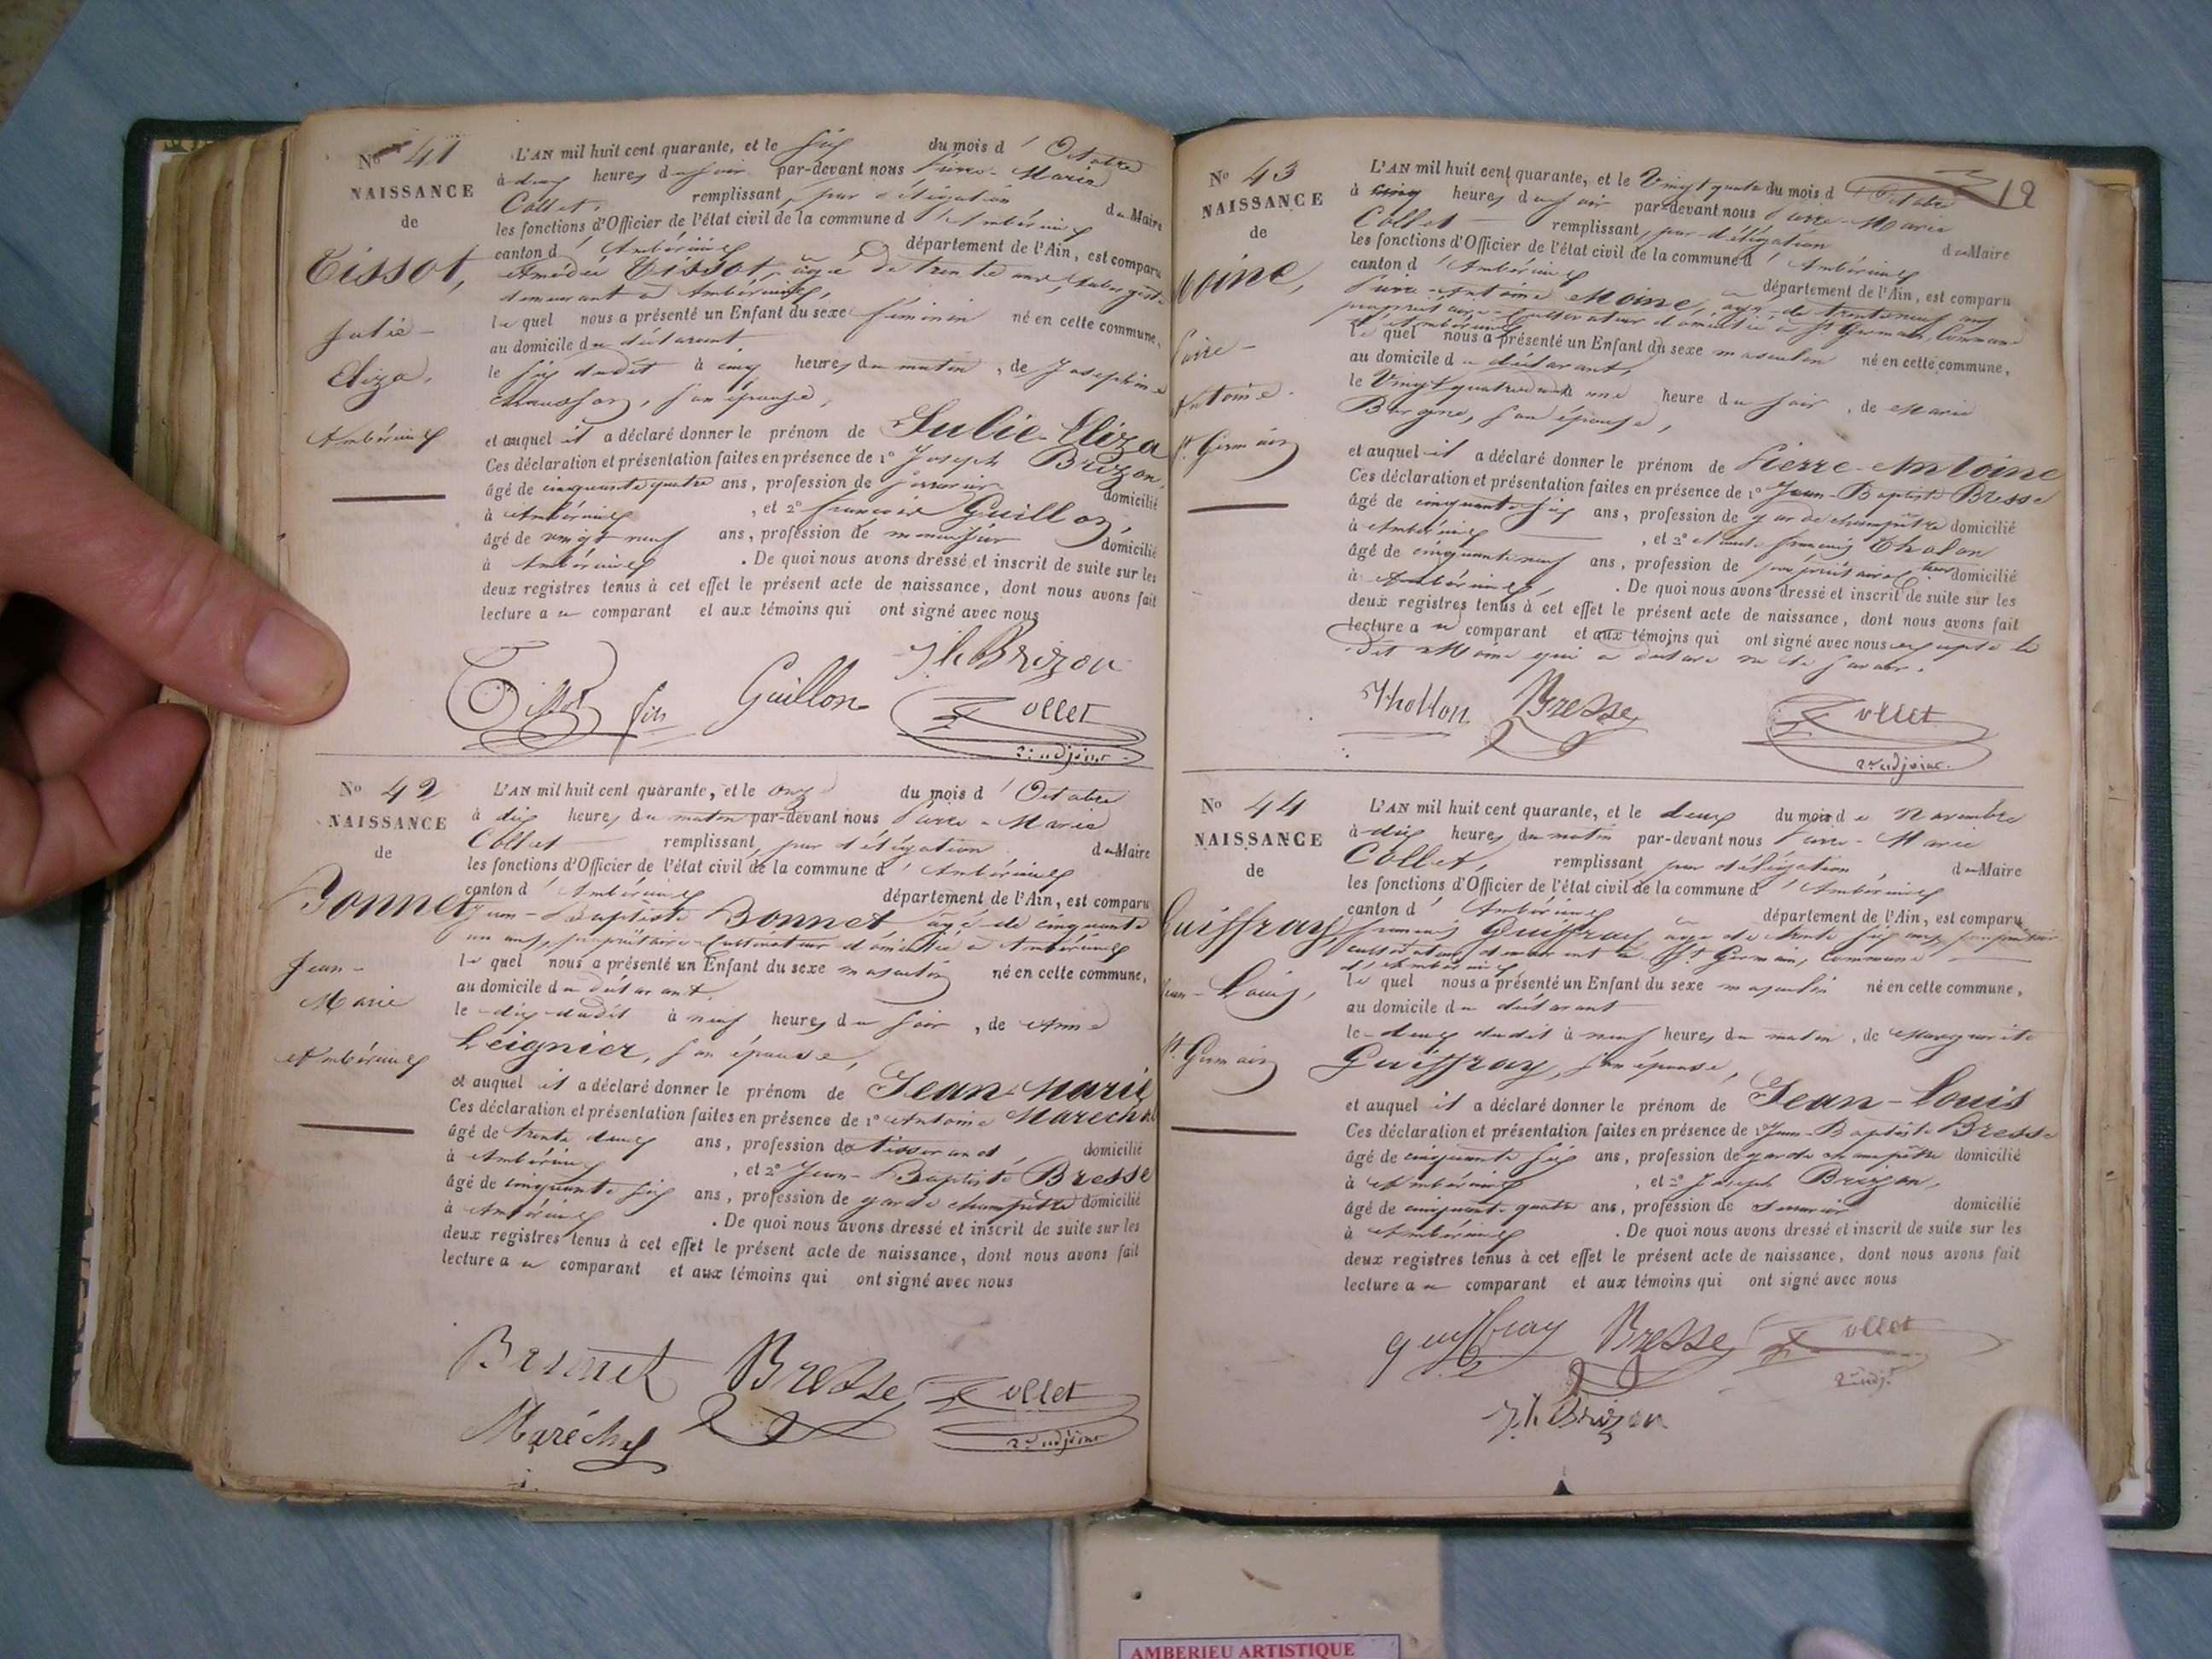 No 41
NAISSANCE
de
Tissot,
Julie-
Eliza,
Ambérieux
L'AN mil huit cent quarante, et le six du mois d'Octobre
à deux heures du soir par-devant nous Pierre-Marie
Collet, remplissant par délégation du Maire
les fonctions d'Officier de l'état civil de la commune d'Ambérieux
canton d'Ambérieux département de l'Ain, est comparu
Amédée Tissot, âgé de trente ans, aubergiste
demeurant à Ambérieux,
lequel nous a présenté un Enfant du sexe féminin né en cette commune,
au domicile du déclarant
le six dudit à cinq heures du matin, de Josephine
son épouse,
et auquel il a déclaré donner le prénom de Julie-Eliza
Ces déclaration et présentation faites en présence de 1º Joseph Brizon,
âgé de cinquante quatre ans, profession de domicilié
à Ambérieux, et 2º françois Guillon,
âgé de vingt neuf ans, profession de menuisier domicilié
à Ambérieux. De quoi nous avons dressé et inscrit de suite sur les
deux registres tenus à cet effet le présent acte de naissance, dont nous avons fait
lecture au comparant et aux témoins qui ont signé avec nous
Tissot fils Guillon Jh Brizon
Collet
2e adjoint
No 42
NAISSANCE
de
Bonnet
Jean-
Marie
Ambérieux
L'AN mil huit cent quarante, et le onze du mois d'Octobre
à dix heures du matin par-devant nous Pierre-Marie
Collet remplissant par délégation du Maire
les fonctions d'Officier de l'état civil de la commune d'Ambérieux
canton d'Ambérieux département de l'Ain, est comparu
Jean-Baptiste Bonnet âgé de cinquante
un ans, propriétaire-Cultivateur domicilié à Ambérieux
lequel nous a présenté un Enfant du sexe masculin né en cette commune,
au domicile du déclarant,
le dix dudit à neuf heures du soir, de Anne
Leignier, son épouse,
et auquel il a déclaré donner le prénom de Jean-Marie
Ces déclaration et présentation faites en présence de 1º Antoine Maréchal
âgé de trente deux ans, profession de tisserand, domicilié
à Ambérieux, et 2º Jean-Baptiste Bresse
âgé de cinquante six ans, profession de garde champêtre domicilié
à Ambérieux. De quoi nous avons dressé et inscrit de suite sur les
deux registres tenus à cet effet le présent acte de naissance, dont nous avons fait
lecture au comparant et aux témoins qui ont signé avec nous
Bonnet Bresse Collet
Maréchal 2e adjoint
12
No 43
NAISSANCE
de
Moine,
Pierre-
Antoine.
St Germain
L'AN mil huit cent quarante, et le Vingt quatre du mois d'Octobre
à cinq heures du soir par-devant nous Pierre-Marie
Collet remplissant, par délégation du Maire
les fonctions d'Officier de l'état civil de la commune d'Ambérieux
canton d'Ambérieux département de l'Ain, est comparu
Pierre-Antoine Moine, âgé de trente neuf ans
propriétaire-Cultivateur domicilié à St Germain, Commune
d'Ambérieux
lequel nous a présenté un Enfant du sexe masculin né en cette commune,
au domicile du déclarant,
le Vingt quatre à une heure du soir, de Marie
son épouse,
et auquel il a déclaré donner le prénom de Pierre-Antoine
Ces déclaration et présentation faites en présence de 1º Jean-Baptiste Bresse
âgé de cinquante six ans, profession de garde champêtre domicilié
à Ambérieux, et 2º Claude françois Tholon
âgé de cinquante neuf ans, profession de propriétaire domicilié
à Ambérieux. De quoi nous avons dressé et inscrit de suite sur les
deux registres tenus à cet effet le présent acte de naissance, dont nous avons fait
lecture au comparant et aux témoins qui ont signé avec nous excepté le
dit Moine qui a déclaré ne le savoir.
Thollon Bresse Collet
2e adjoint
No 44
NAISSANCE
de
Guiffray,
Jean-Louis,
St Germain
L'AN mil huit cent quarante, et le deux du mois de Novembre
à dix heures du matin par-devant nous Pierre-Marie
Collet, remplissant par délégation du Maire
les fonctions d'Officier de l'état civil de la commune d'Ambérieux
canton d'Ambérieux département de l'Ain, est comparu
francois Guiffray âgé de trente six ans, propriétaire
cultivateur demeurant à St Germain, Commune
d'Ambérieux
lequel nous a présenté un Enfant du sexe masculin né en cette commune,
au domicile du déclarant
le deux dudit à neuf heures du matin, de Marguerite
Guiffray, son épouse,
et auquel il a déclaré donner le prénom de Jean-Louis
Ces déclaration et présentation faites en présence de 1º Jean-Baptiste Bresse
âgé de cinquante six ans, profession de garde champêtre domicilié
à Ambérieux, et 2º Joseph Brizon,
âgé de cinquante quatre ans, profession de domicilié
à Ambérieux. De quoi nous avons dressé et inscrit de suite sur les
deux registres tenus à cet effet le présent acte de naissance, dont nous avons fait
lecture au comparant et aux témoins qui ont signé avec nous
guiffray Bresse Collet
2e adjt
Jh Brizon
AMBERIEU ARTISTIQUE